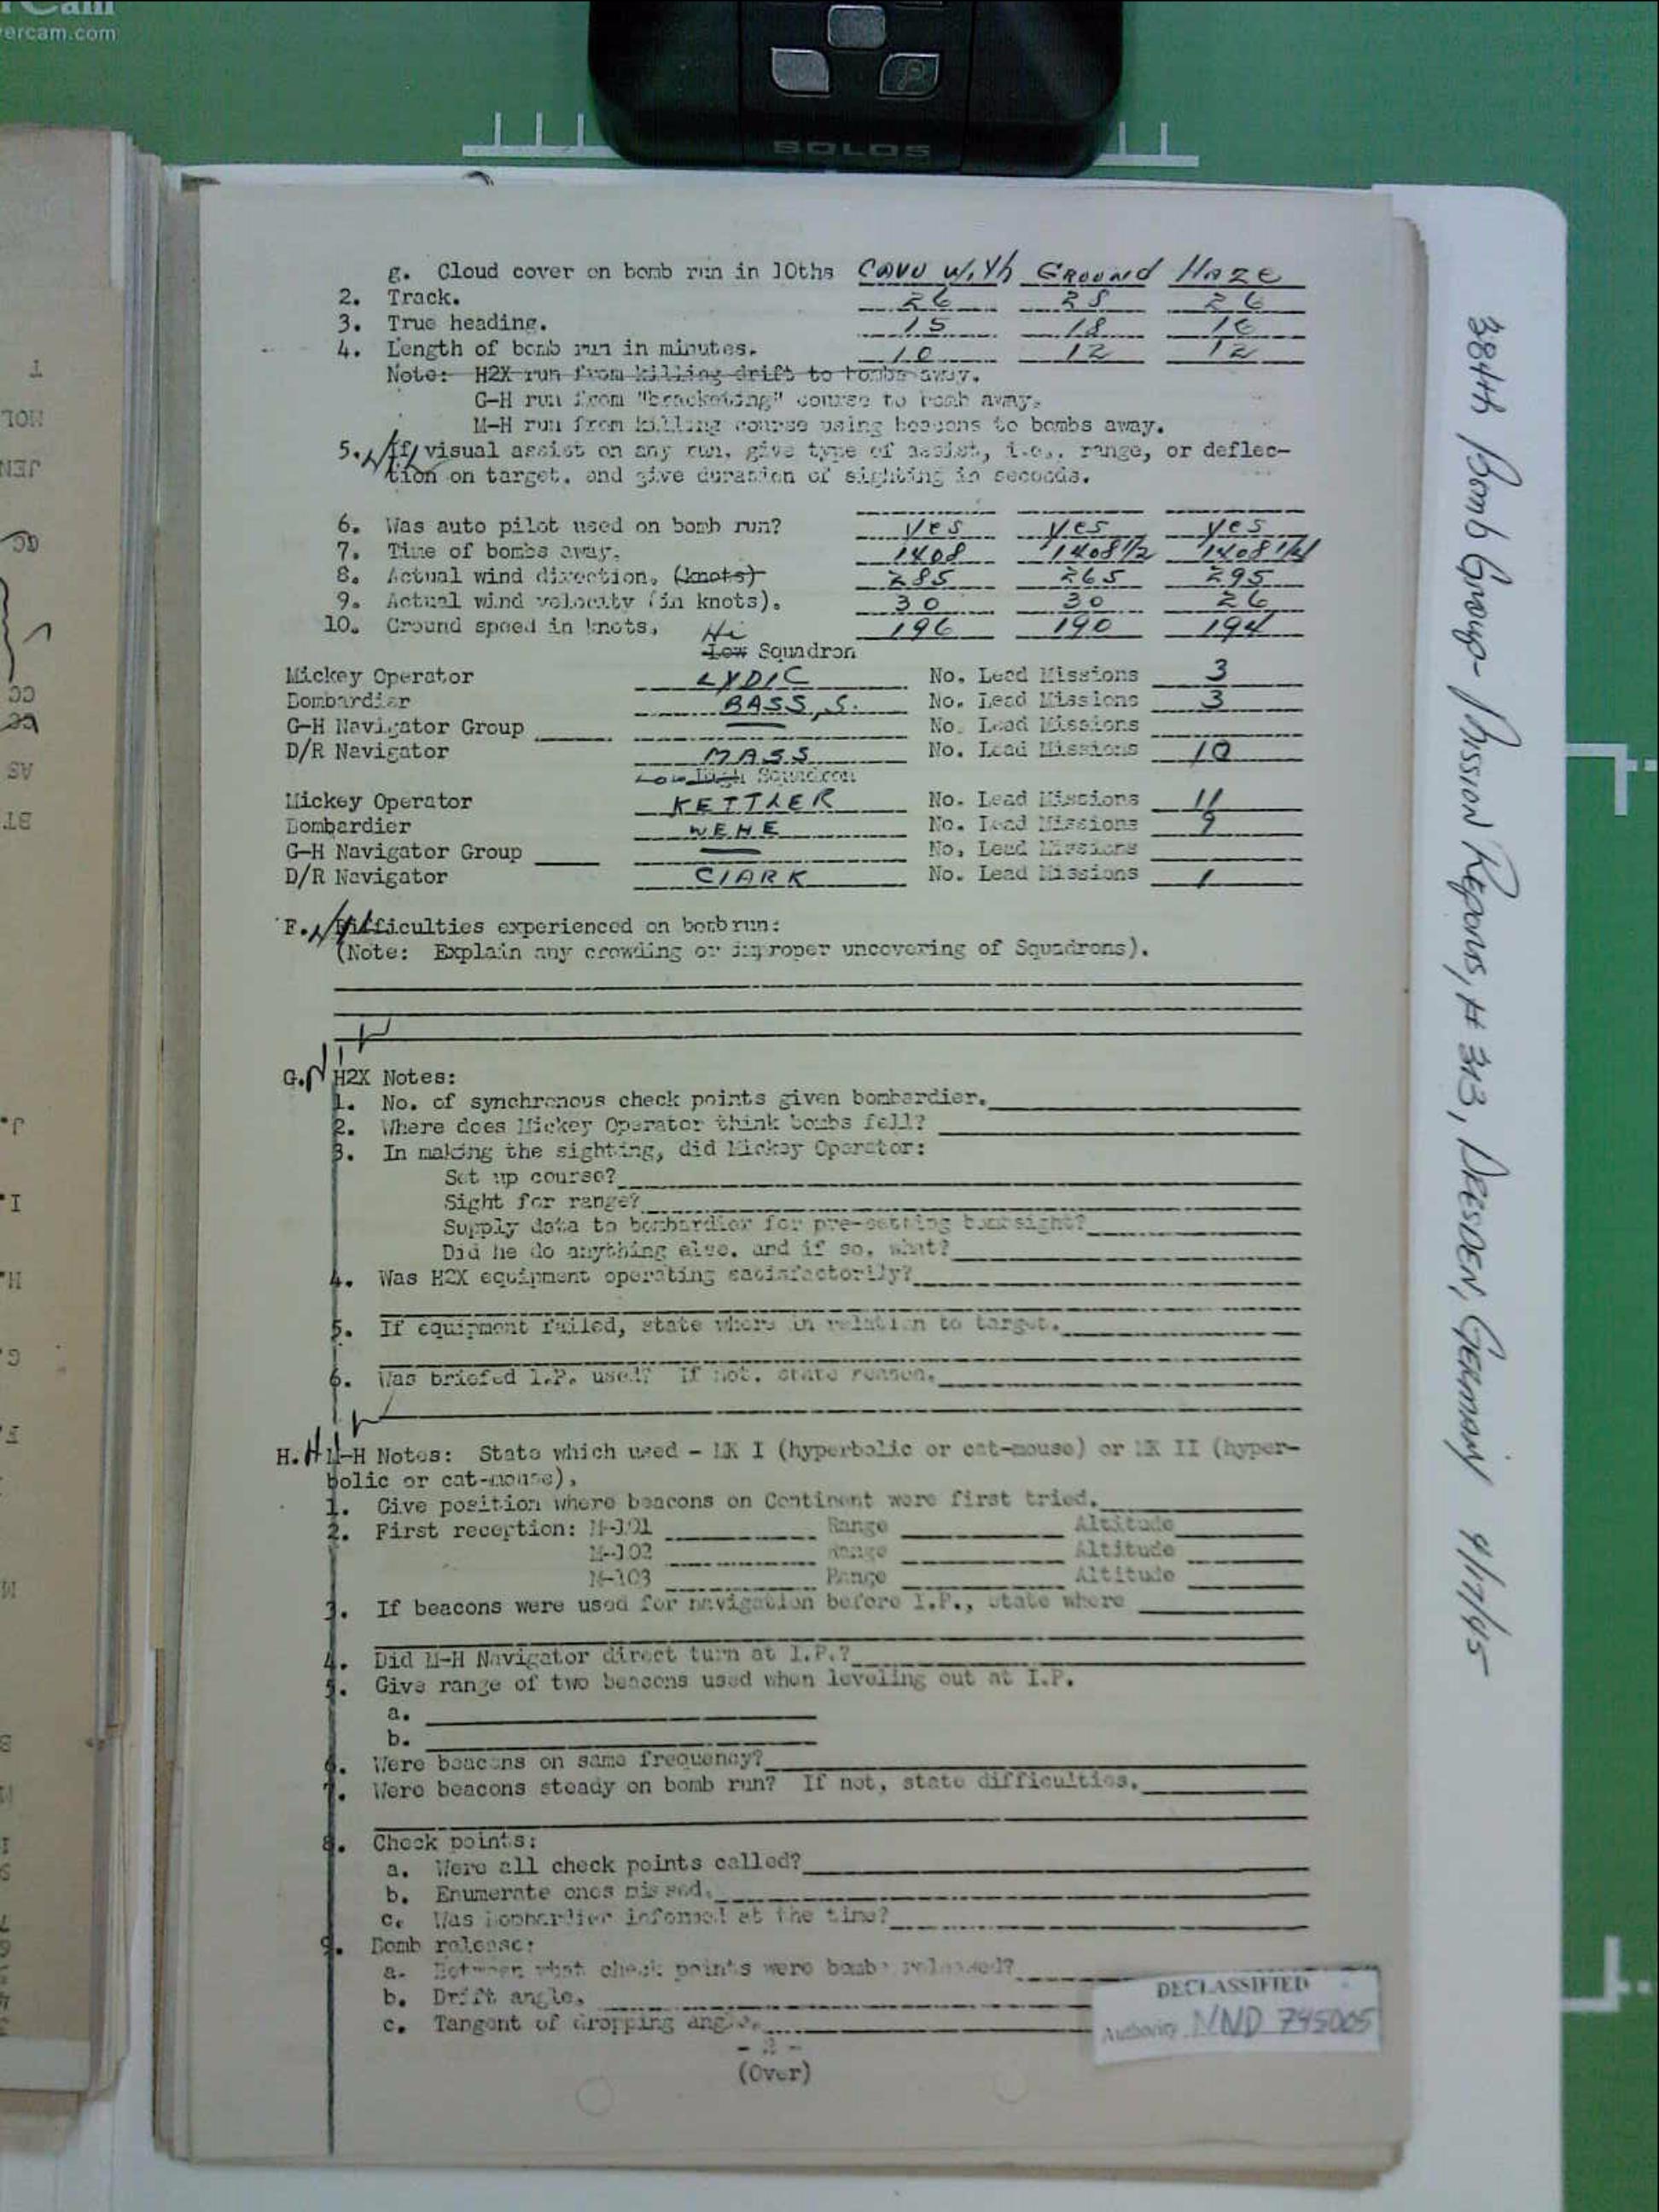 Cam
vercam.com
P
SOLOS
g. Cloud cover on bomb run in 10ths CAVU With GROUND HAZE
2. Track. 26 28 26
3. True heading. 15 18 16
4. Length of bomb run in minutes. 10 12 12
Note: H2X run from killing drift to bombs away.
G-H run from "bracketing" course to bomb away.
M-H run from killing course using beacons to bombs away.
5. If visual assist on any run, give type of assist, i.e., range, or deflec-
tion on target, and give duration of sighting in seconds.
6. Was auto pilot used on bomb run? Yes Yes Yes
7. Time of bombs away. 1408 1408 1/2 1408 1/4
8. Actual wind direction, (knots) 285 265 295
9. Actual wind velocity (in knots). 30 30 26
10. Ground speed in knots, 196 190 194
Hi
Low Squadron
Mickey Operator LYDIC No. Lead Missions 3
Bombardier BASS, S. No. Lead Missions 3
G-H Navigator Group No. Lead Missions
D/R Navigator MASS No. Lead Missions 10
Low High Squadron
Mickey Operator KETTLER No. Lead Missions 11
Bombardier WEHE No. Lead Missions 9
G-H Navigator Group No. Lead Missions
D/R Navigator CLARK No. Lead Missions 1
F. Difficulties experienced on bomb run:
(Note: Explain any crowding or improper uncovering of Squadrons).
G. H2X Notes:
1. No. of synchronous check points given bombardier.
2. Where does Mickey Operator think bombs fell?
3. In making the sighting, did Mickey Operator:
Set up course?
Sight for range?
Supply data to bombardier for pre-setting bombsight?
Did he do anything else, and if so, what?
4. Was H2X equipment operating satisfactorily?
5. If equipment failed, state where in relation to target.
6. Was briefed I.P. used? If not, state reason.
H. M-H Notes: State which used - MK I (hyperbolic or cat-mouse) or MK II (hyper-
bolic or cat-mouse),
1. Give position where beacons on Continent were first tried.
2. First reception: M-101 Range Altitude
M-102 Range Altitude
M-103 Range Altitude
3. If beacons were used for navigation before I.P., state where
4. Did M-H Navigator direct turn at I.P.?
5. Give range of two beacons used when leveling out at I.P.
a.
b.
6. Were beacons on same frequency?
7. Were beacons steady on bomb run? If not, state difficulties.
8. Check points:
a. Were all check points called?
b. Enumerate ones missed.
c. Was bombardier informed at the time?
9. Bomb release:
a. Between what check points were bombs released?
b. Drift angle.
c. Tangent of dropping angle.
- 2 -
(Over)
DECLASSIFIED
Authority NND 745005
384th Bomb Group- Mission Reports, # 313, DRESDEN, GERMANY 4/17/45